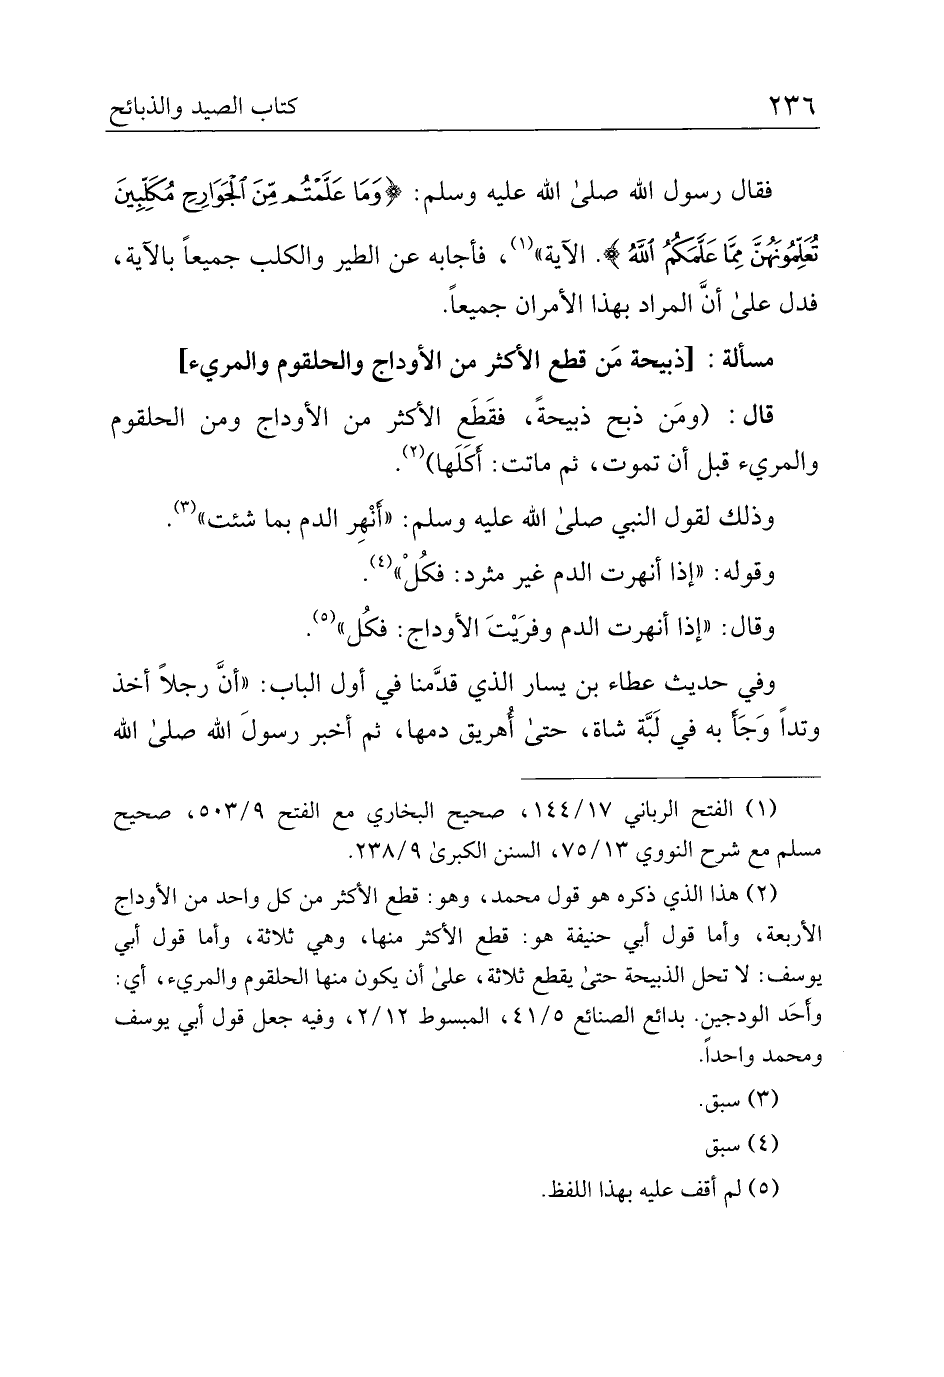 ٢٣٦ كتاب الصيد والذبائح
فقال رسول الله صلىٰ الله عليه وسلم: ﴿وَمَا عَلَّمْتُم مِّنَ ٱلْجَوَارِحِ مُكَلِّبِينَ
تُعَلِّمُونَهُنَّ مِمَّا عَلَّمَكُمُ ٱللَّهُ﴾. الآية»(١)، فأجابه عن الطير والكلب جميعاً بالآية،
فدل علىٰ أنَّ المراد بهذا الأمران جميعاً.
مسألة : [ذبيحة مَن قطع الأكثر من الأوداج والحلقوم والمريء]
قال : (ومَن ذبح ذبيحةً، فقَطَع الأكثر من الأوداج ومن الحلقوم
والمريء قبل أن تموت، ثم ماتت: أَكَلَها)(٢).
وذلك لقول النبي صلىٰ الله عليه وسلم: «أَنْهِر الدم بما شئت»(٣).
وقوله: «إذا أنهرت الدم غير مثرد: فكُلْ»(٤).
وقال: «إذا أنهرت الدم وفرَيْتَ الأوداج: فكُل»(٥).
وفي حديث عطاء بن يسار الذي قدَّمنا في أول الباب: «أنَّ رجلاً أخذ
وتداً وَجَأَ به في لَبَّة شاة، حتىٰ أُهريق دمها، ثم أخبر رسولَ الله صلىٰ الله
(١) الفتح الرباني ١٤٤/١٧، صحيح البخاري مع الفتح ٥٠٣/٩، صحيح
مسلم مع شرح النووي ٧٥/١٣، السنن الكبرىٰ ٢٣٨/٩.
(٢) هذا الذي ذكره هو قول محمد، وهو: قطع الأكثر من كل واحد من الأوداج
الأربعة، وأما قول أبي حنيفة هو: قطع الأكثر منها، وهي ثلاثة، وأما قول أبي
يوسف: لا تحل الذبيحة حتىٰ يقطع ثلاثة، علىٰ أن يكون منها الحلقوم والمريء، أي:
وأَحَد الودجين. بدائع الصنائع ٤١/٥، المبسوط ٢/١٢، وفيه جعل قول أبي يوسف
ومحمد واحداً.
(٣) سبق.
(٤) سبق
(٥) لم أقف عليه بهذا اللفظ.